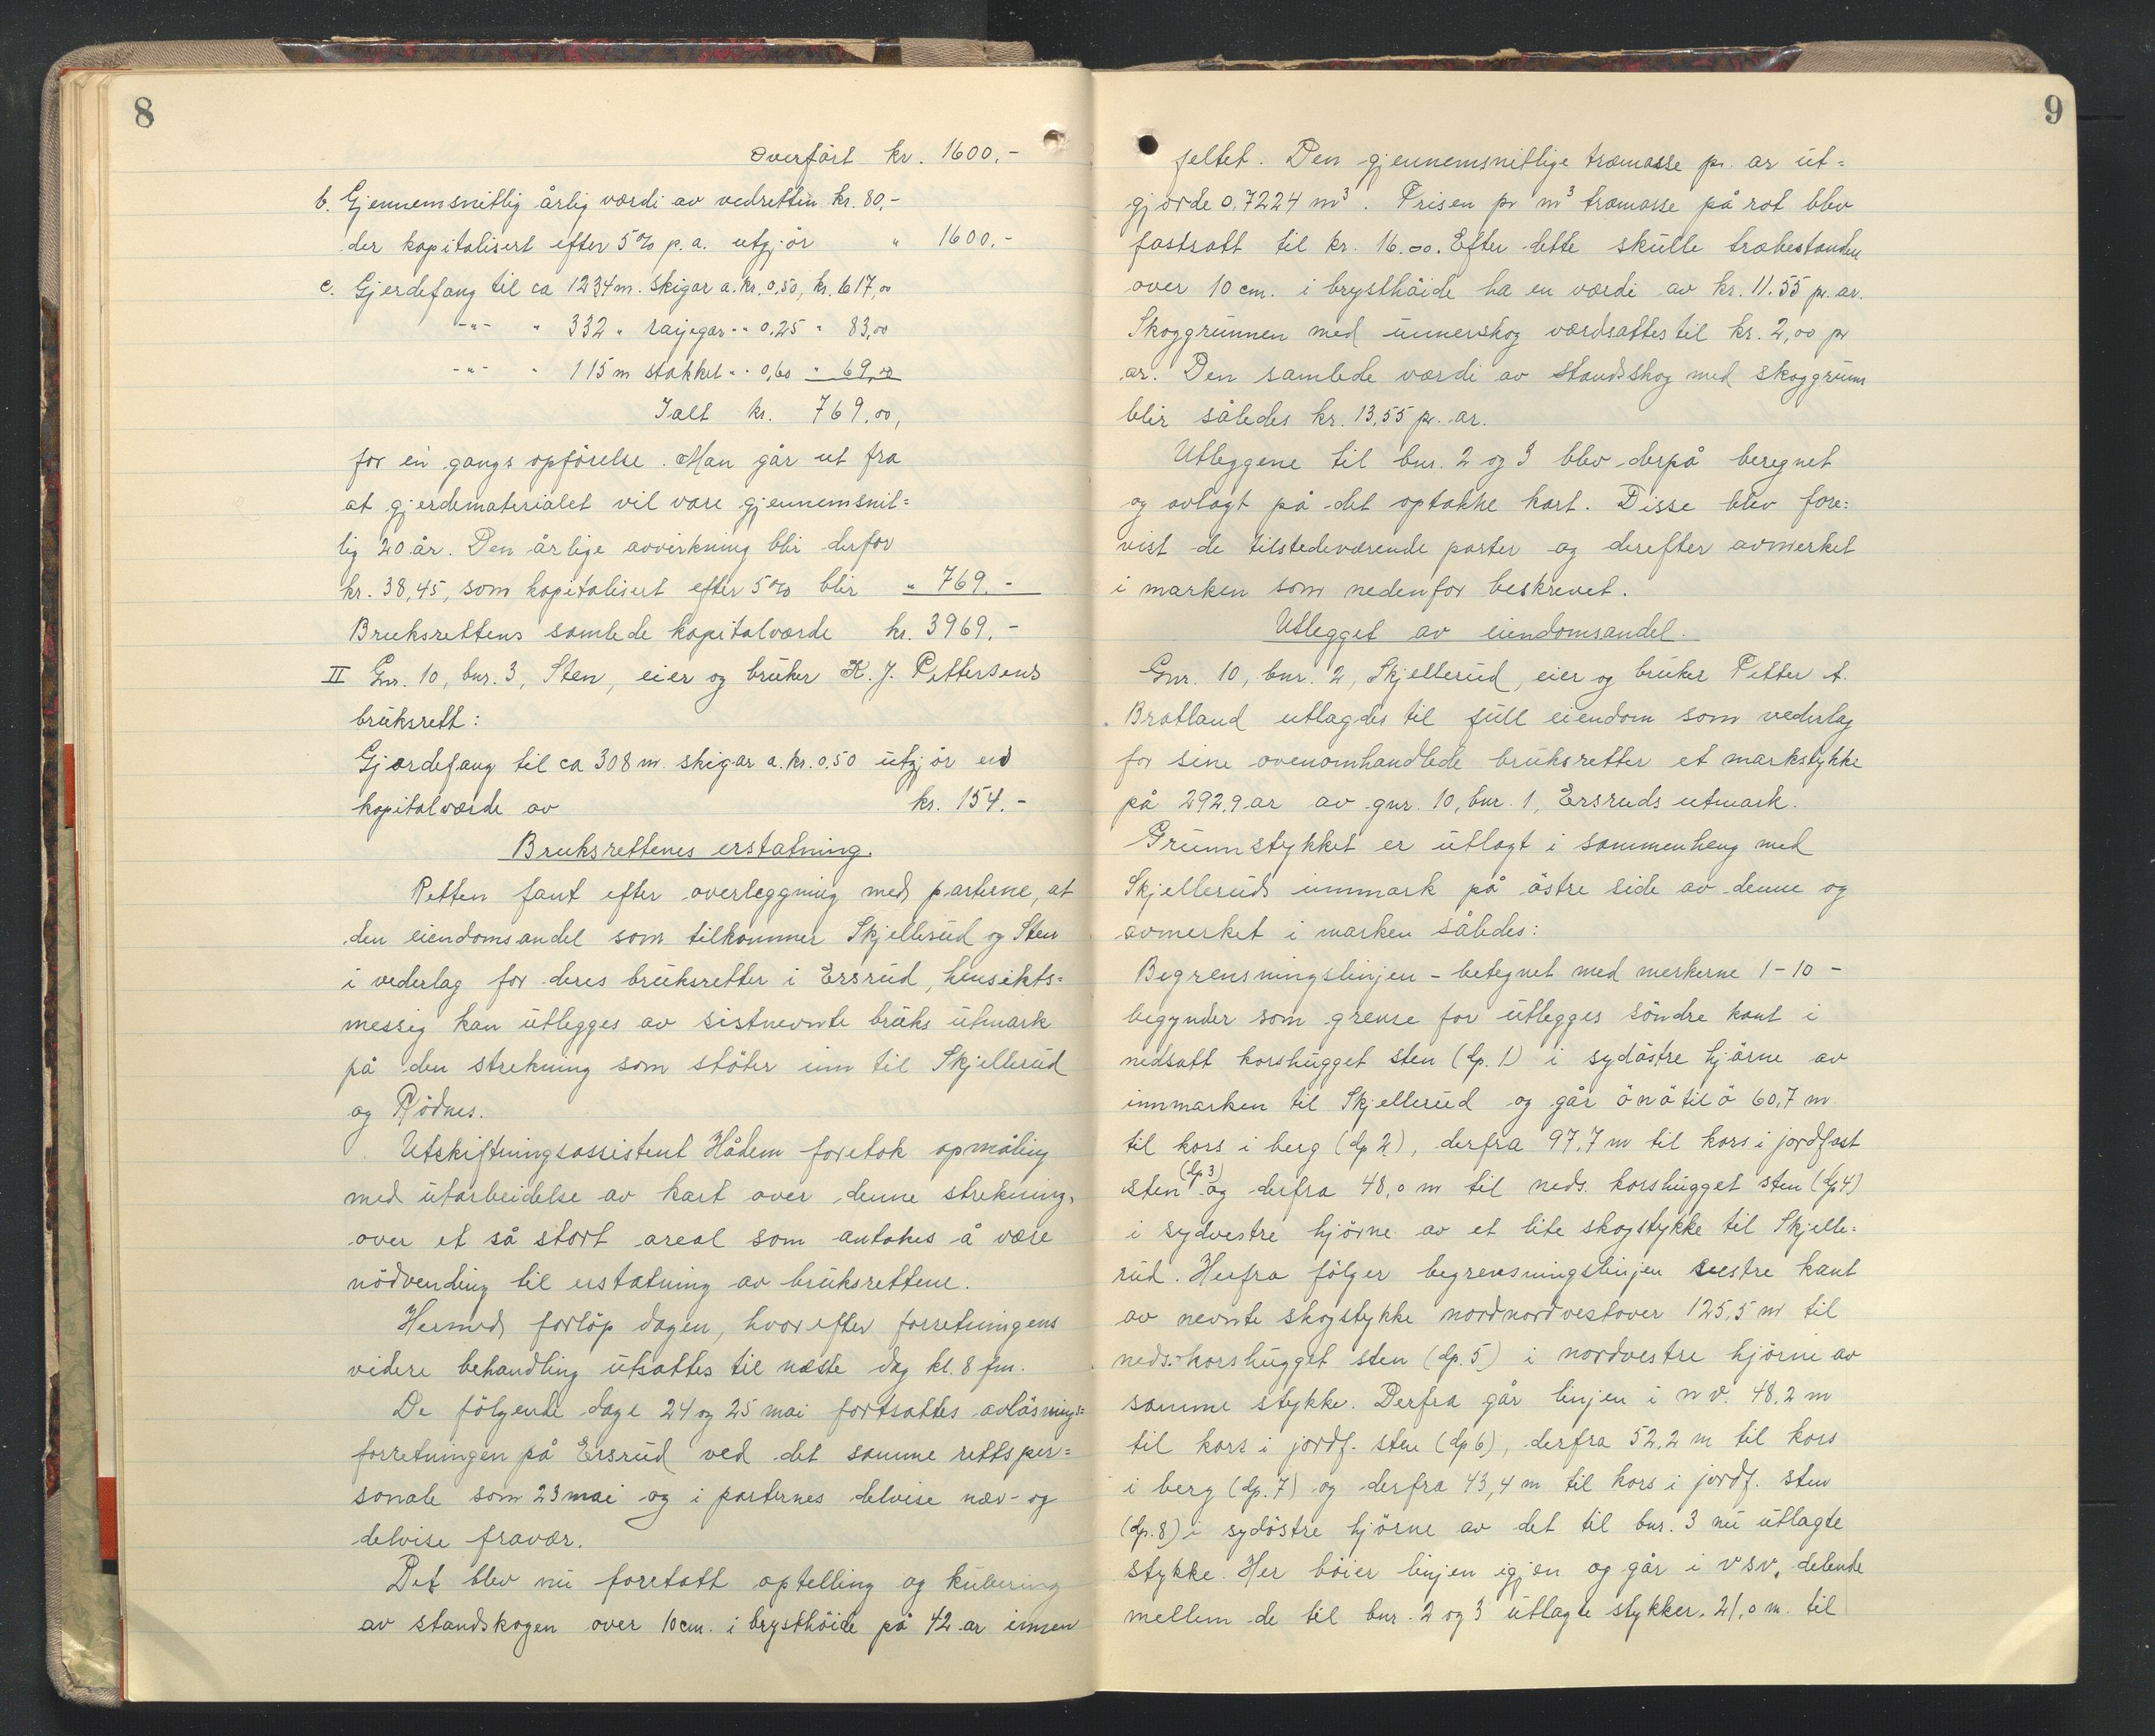 8
Overført kr. 1600.-
b. Gjennemsnitlig årlig værdi av vedretten kr. 80,-
der kapitalisert efter 5% p.a. utgjör " 1600.-
c. Gjerdefang til ca 1234 m. skigar a. kr. 0,50, kr. 617,00
-"- " 332 " raijegar " " 0.25 " 83,00
-"- " 115 m stakket " " 0,60 " 69,00
Ialt kr. 769,00,
for en gangs opförelse. Man går ut fra
at gjerdematerialet vil vare gjennemsnit=
lig 20 år. Den årlige avvirkning blir derfor
kr. 38,45, som kapitalisert efter 5% blir " 769.-
Bruksrettens samlede kapitalværde kr. 3969.-
II Gnr. 10, bnr. 3, Sten, eier og bruker K. J. Pettersens
bruksrett:
Gjærdefang til ca 308 m. skigar a. kr. 0,50 utgjör en
kapitalværde av kr. 154.-
Bruksrettenes erstatning.
Retten fant efter overleggning med parterne, at
den eiendomsandel som tilkommer Skjellerud og Sten
i vederlag for deres bruksretter i Ersrud, hensikts=
messig kan utlegges av sistnevnte bruks utmark
på den strekning som stöter inn til Skjellerud
og Rödnes.
Utskiftningsassistent Hådem foretok opmåling
med utarbeidelse av kart over denne strekning,
over et så stort areal som antakes å være
nödvendig til erstatning av bruksrettene.
Hermed forlöp dagen, hvorefter forretningens
videre behandling utsattes til næste dag kl. 8 fm.
De fölgende dage 24 og 25 mai fortsattes avlösnings=
forretningen på Ersrud ved det samme rettsper=
sonale som 23 mai og i parternes delvise nær- og
delvise fravær.
Det blev nu foretatt optelling og kubering
av standskogen over 10 cm. i brysthöide på 42 ar innen
9
feltet. Den gjennemsnitlige træmasse pr. ar ut=
gjorde 0,7224 m³. Prisen pr m³ træmasse på rot blev
fastsatt til kr. 16.00. Efter dette skulle træbestanden
over 10 cm. i brysthöide ha en værdi av kr. 11.55 pr. ar.
Skoggrunnen med unnerskog værdsattes til kr. 2,00 pr
ar. Den samlede værdi av standskog med skoggrunn
blir således kr. 13,55 pr. ar.
Utleggene til bnr. 2 og 3 blev derpå beregnet
og avlagt på det optakne kart. Disse blev fore=
vist de tilstedeværende parter og derefter avmerket
i marken som nedenfor beskrevet.
Utlegget av eiendomsandel.
Gnr. 10, bnr. 2, Skjellerud, eier og bruker Petter A.
Bratland utlagdes til full eiendom som vederlag
for sine ovenomhandlede bruksretter et markstykke
på 292,9 ar av gnr. 10, bnr. 1, Ersruds utmark.
Grunnstykket er utlagt i sammenheng med
Skjelleruds innmark på östre side av denne og
avmerket i marken således:
Begrensningslinjen - betegnet med merkerne 1-10 -
begynder som grense for utlegges söndre kant i
nedsatt korshugget sten (dp. 1) i sydöstre hjörne av
innmarken til Skjellerud og går ö n ö til ö 60,7 m
til kors i berg (dp 2), derfra 97,7 m til kors i jordfast
sten (dp 3) og derfra 48,0 m til neds. korshugget sten (dp 4)
i sydvestre hjörne av et lite skogstykke til Skjelle=
rud. Herfra fölger begrensningslinjen vestre kant
av nevnte skogstykke nordnordvestover 125,5 m til
neds. korshugget sten (dp. 5) i nordvestre hjörne av
samme stykke. Derfra går linjen i n v. 48,2 m
til kors i jordf. sten (dp 6), derfra 52,2 m til kors
i berg (dp. 7) og derfra 43,4 m til kors i jordf. sten
(dp. 8) i sydöstre hjörne av det til bnr. 3 nu utlagte
stykke. Her böier linjen igjen og går i v s v, delende
mellem de til bnr. 2 og 3 utlagte stykker, 21,0 m. til